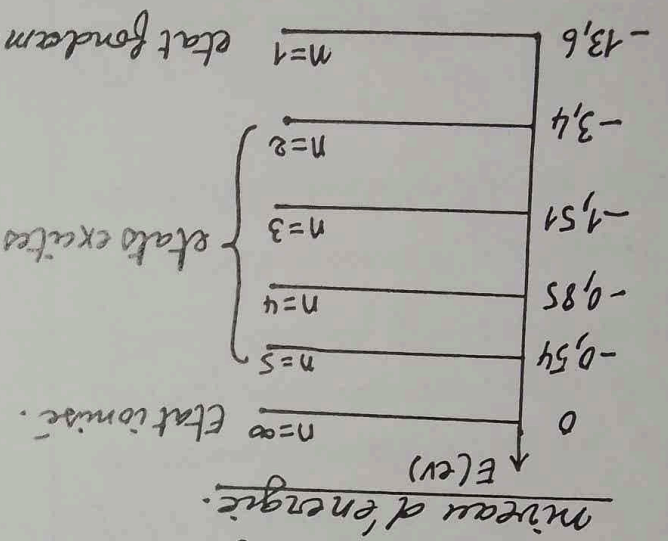 niveau d'energie.
E(ev)
0 n=∞ Etat ionisé.
-0,54 n=5
-0,85 n=4
-1,51 n=3 etats excités
-3,4 n=2
-13,6 n=1 etat fondam